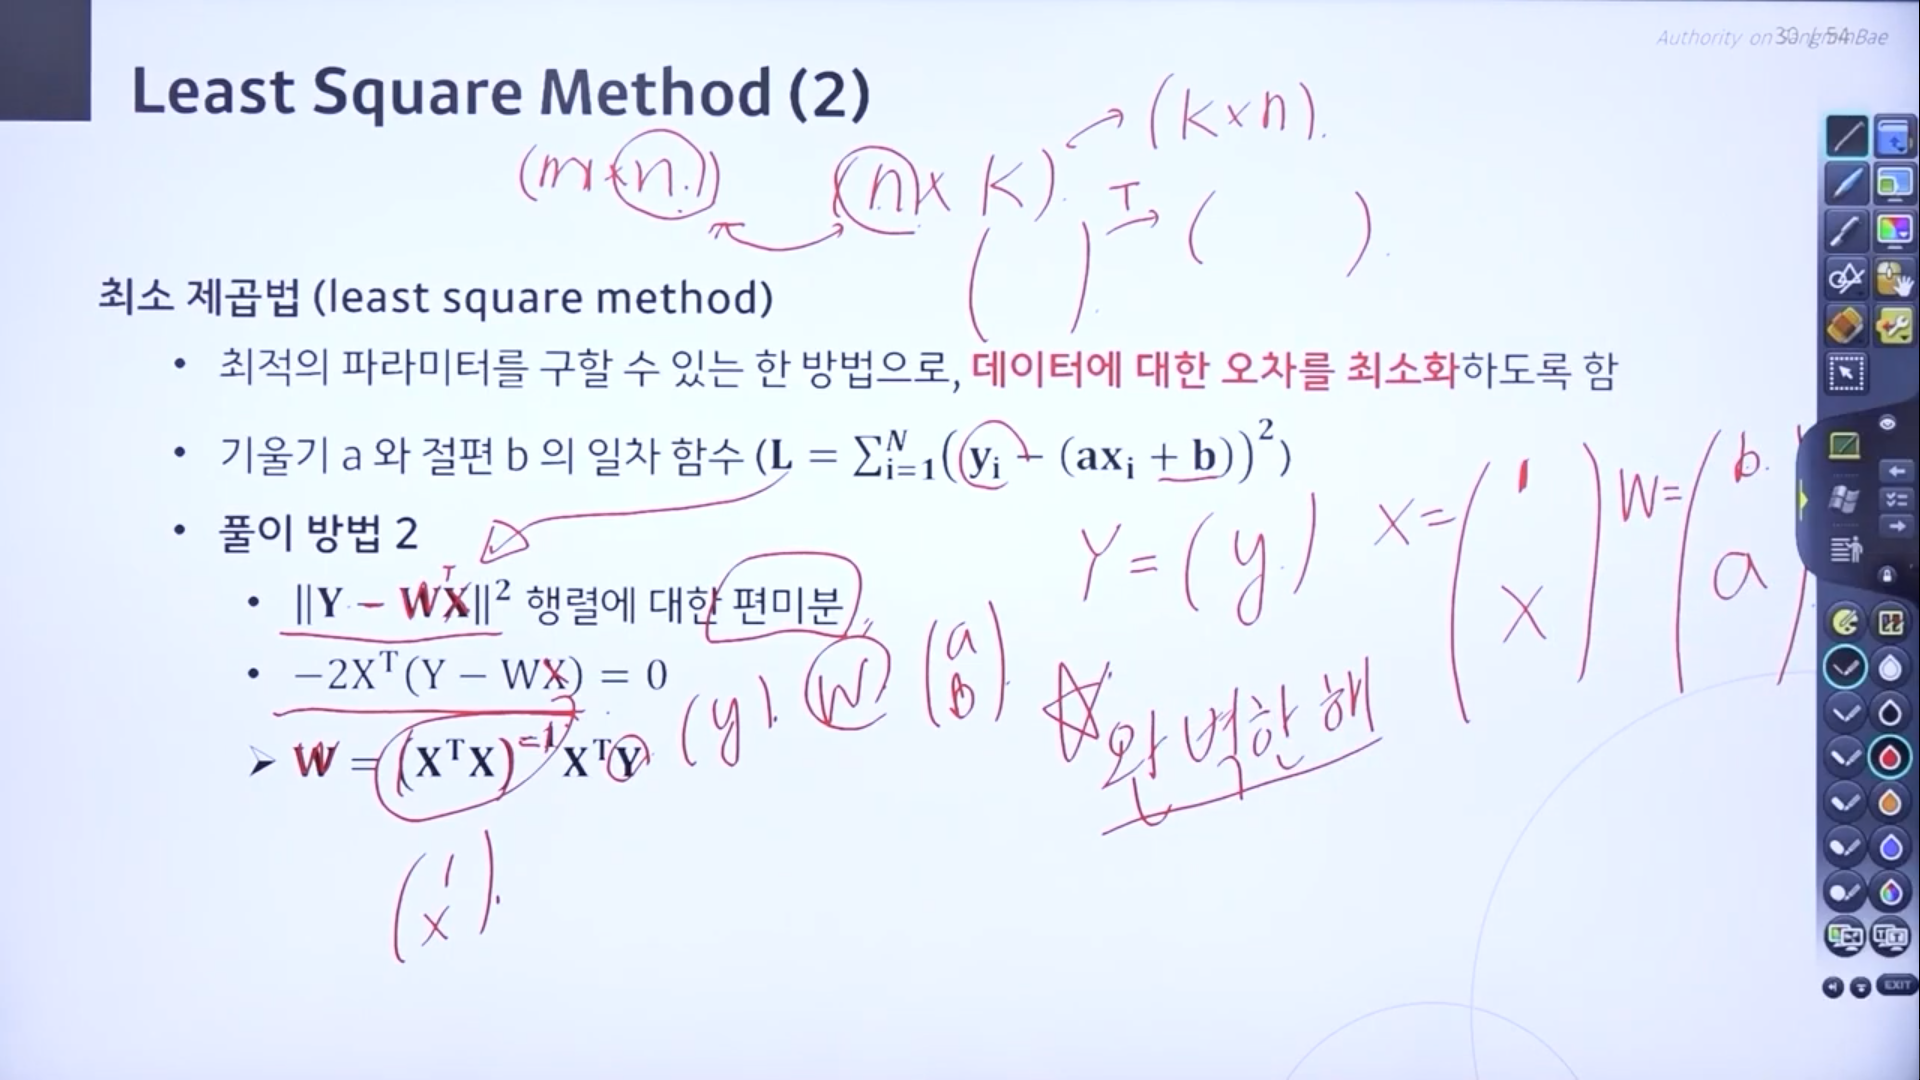 Authority on SangminBae
30 / 54
Least Square Method (2)
(k×n).
(m×n.) (n× k).
T
( ) → ( ).
최소 제곱법 (least square method)
• 최적의 파라미터를 구할 수 있는 한 방법으로, 데이터에 대한 오차를 최소화하도록 함
• 기울기 a 와 절편 b 의 일차 함수 (L = ∑ᵢ₌₁ᴺ(yᵢ − (axᵢ + b))²)
Y = (y.) X = (1 X) W = (b. a)
• 풀이 방법 2
T
• ‖Y − WX‖² 행렬에 대한 편미분
• −2Xᵀ(Y − WX) = 0
(y). W (a b).
☆완벽한 해
➢ W = (XᵀX)⁻¹XᵀY
(1 x).
EXIT